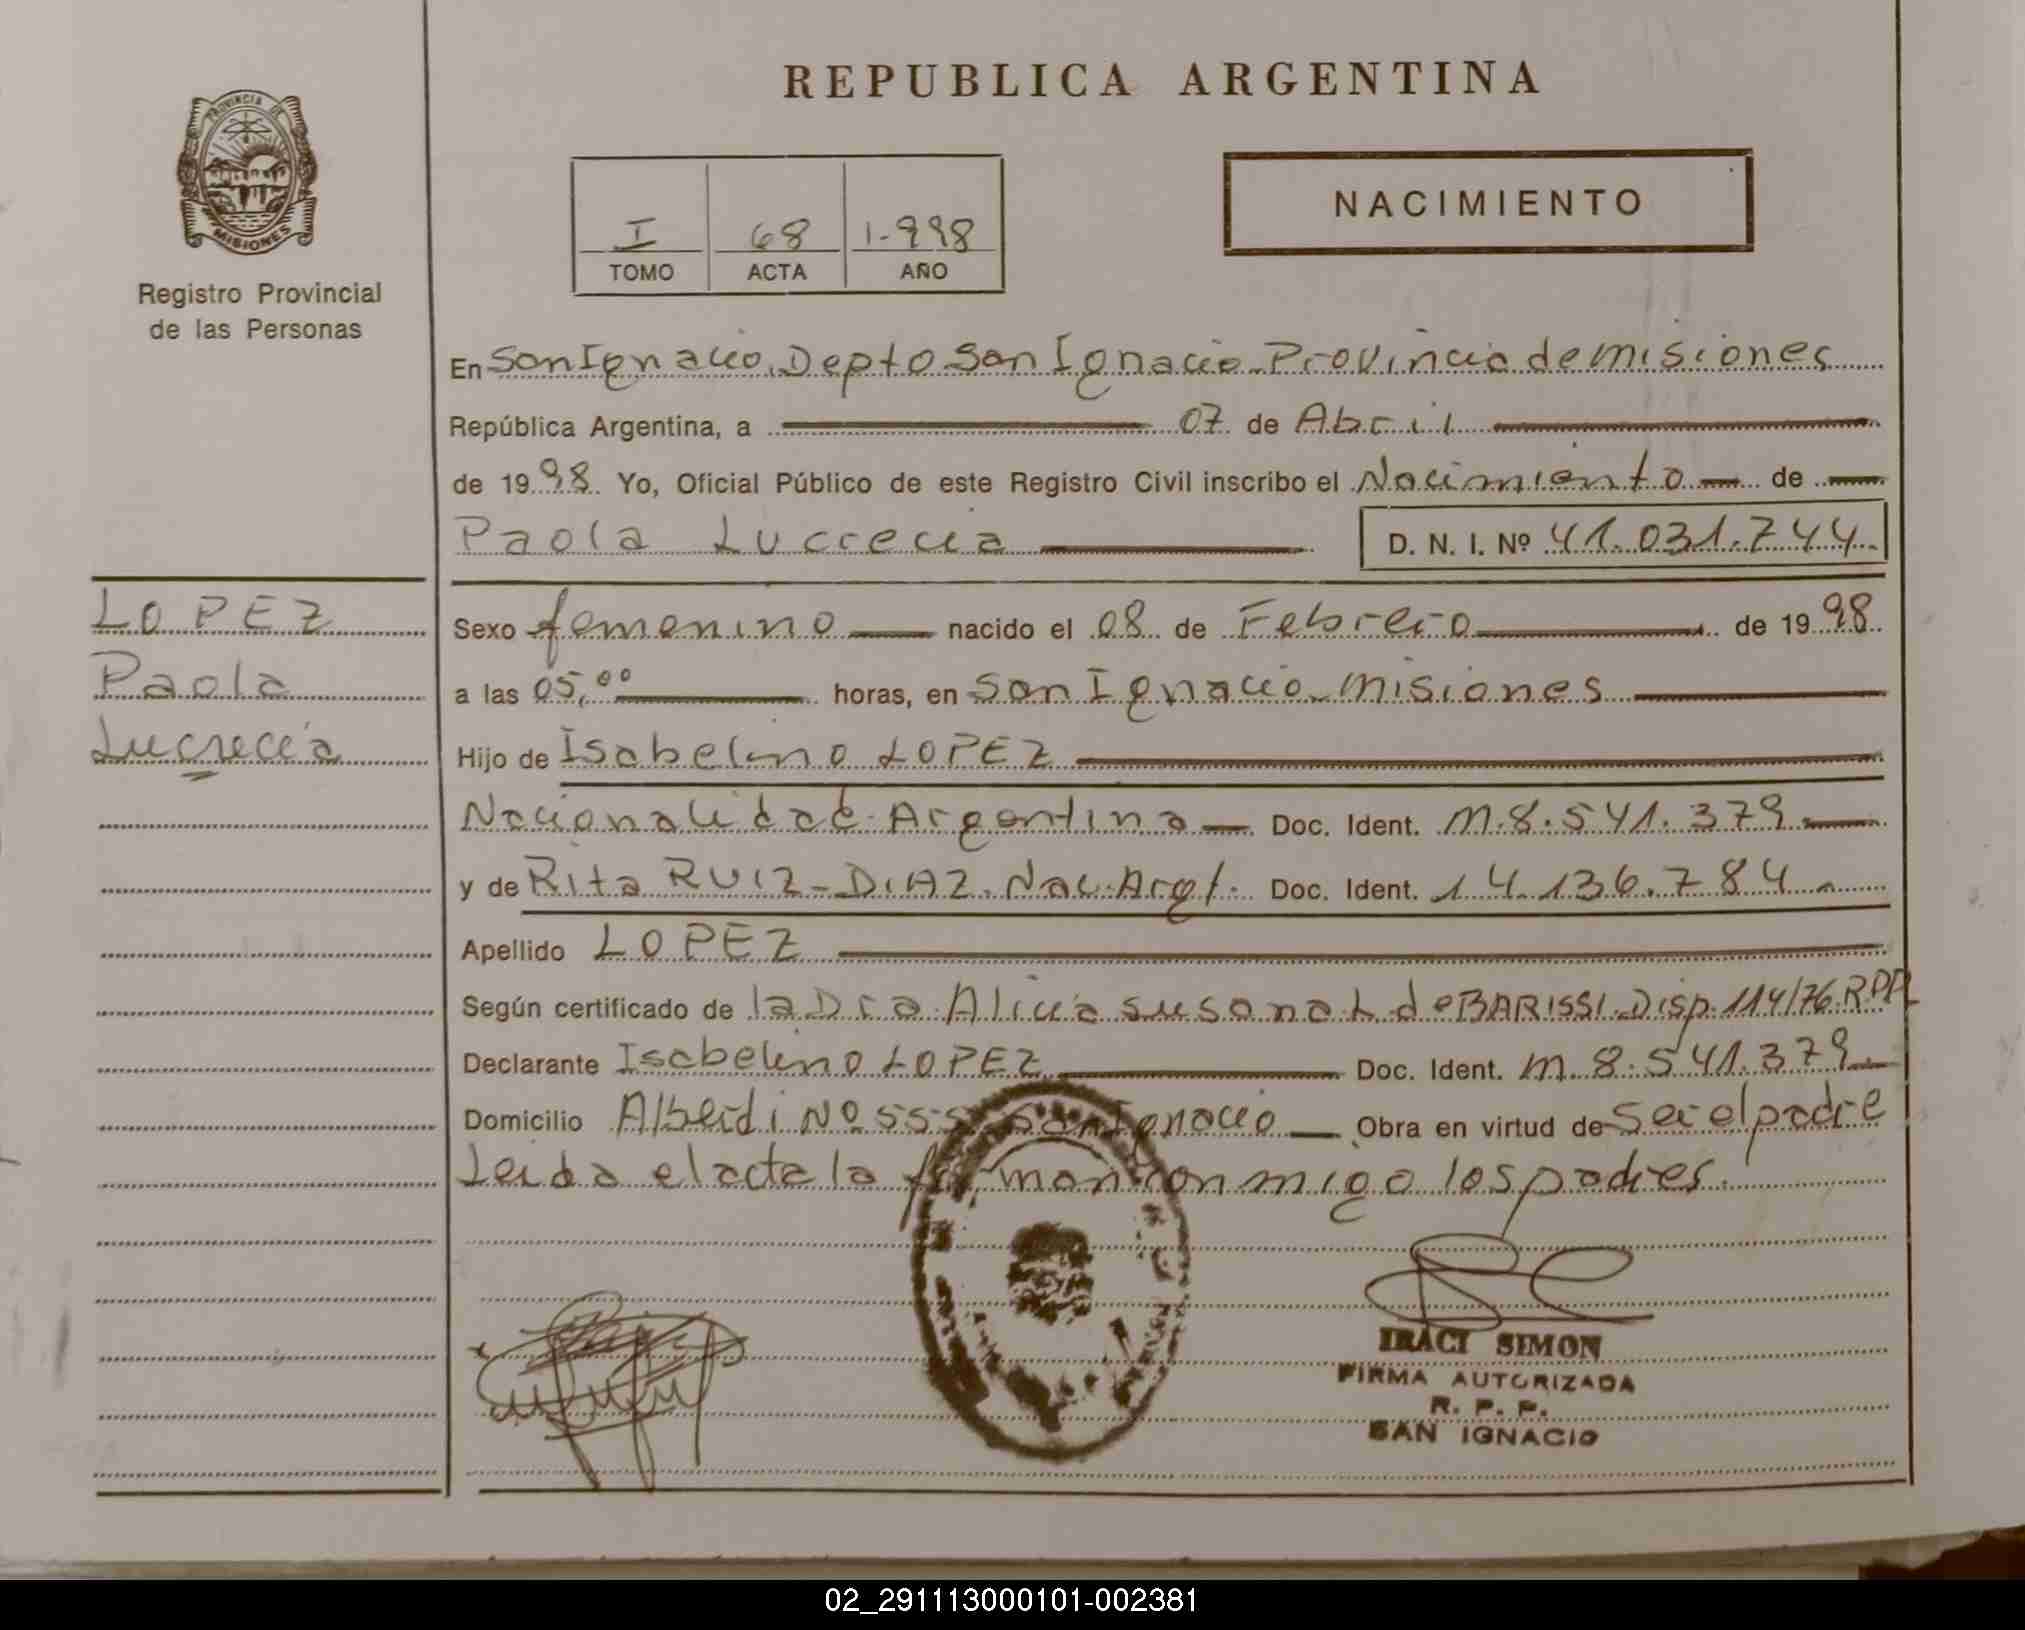 REPUBLICA ARGENTINA
PROVINCIA DE
MISIONES
Registro Provincial
de las Personas
NACIMIENTO
I 68 1.998
TOMO ACTA AÑO
En San Ignacio. Depto San Ignacio. Provincia de misiones
República Argentina, a 07 de Abril
de 1998 Yo, Oficial Público de este Registro Civil inscribo el Nacimiento de
Paola Lucrecia D. N. I. Nº 41.031.744.
LOPEZ
Paola
Lucrecia
Sexo femenino nacido el 08 de Febrero de 1998
a las 05,00 horas, en San Ignacio. misiones
Hijo de Isabelino LOPEZ
Nacionalidad. Argentina Doc. Ident. M.8.541.379
y de Rita RUIZ-DIAZ. Nac. Arg/. Doc. Ident. 14.136.784.
Apellido LOPEZ
Según certificado de la Dra. Alicia susana L de BARISSI. Disp. 114/76. R.PP.
Declarante Isabelino LOPEZ Doc. Ident. M.8.541.379.
Domicilio Alberdi Nº 555 San Ignacio Obra en virtud de Ser el padre
Leida el acta la firman conmigo los padres.
IRACI SIMON
FIRMA AUTORIZADA
R. P. P.
SAN IGNACIO
02_291113000101-002381